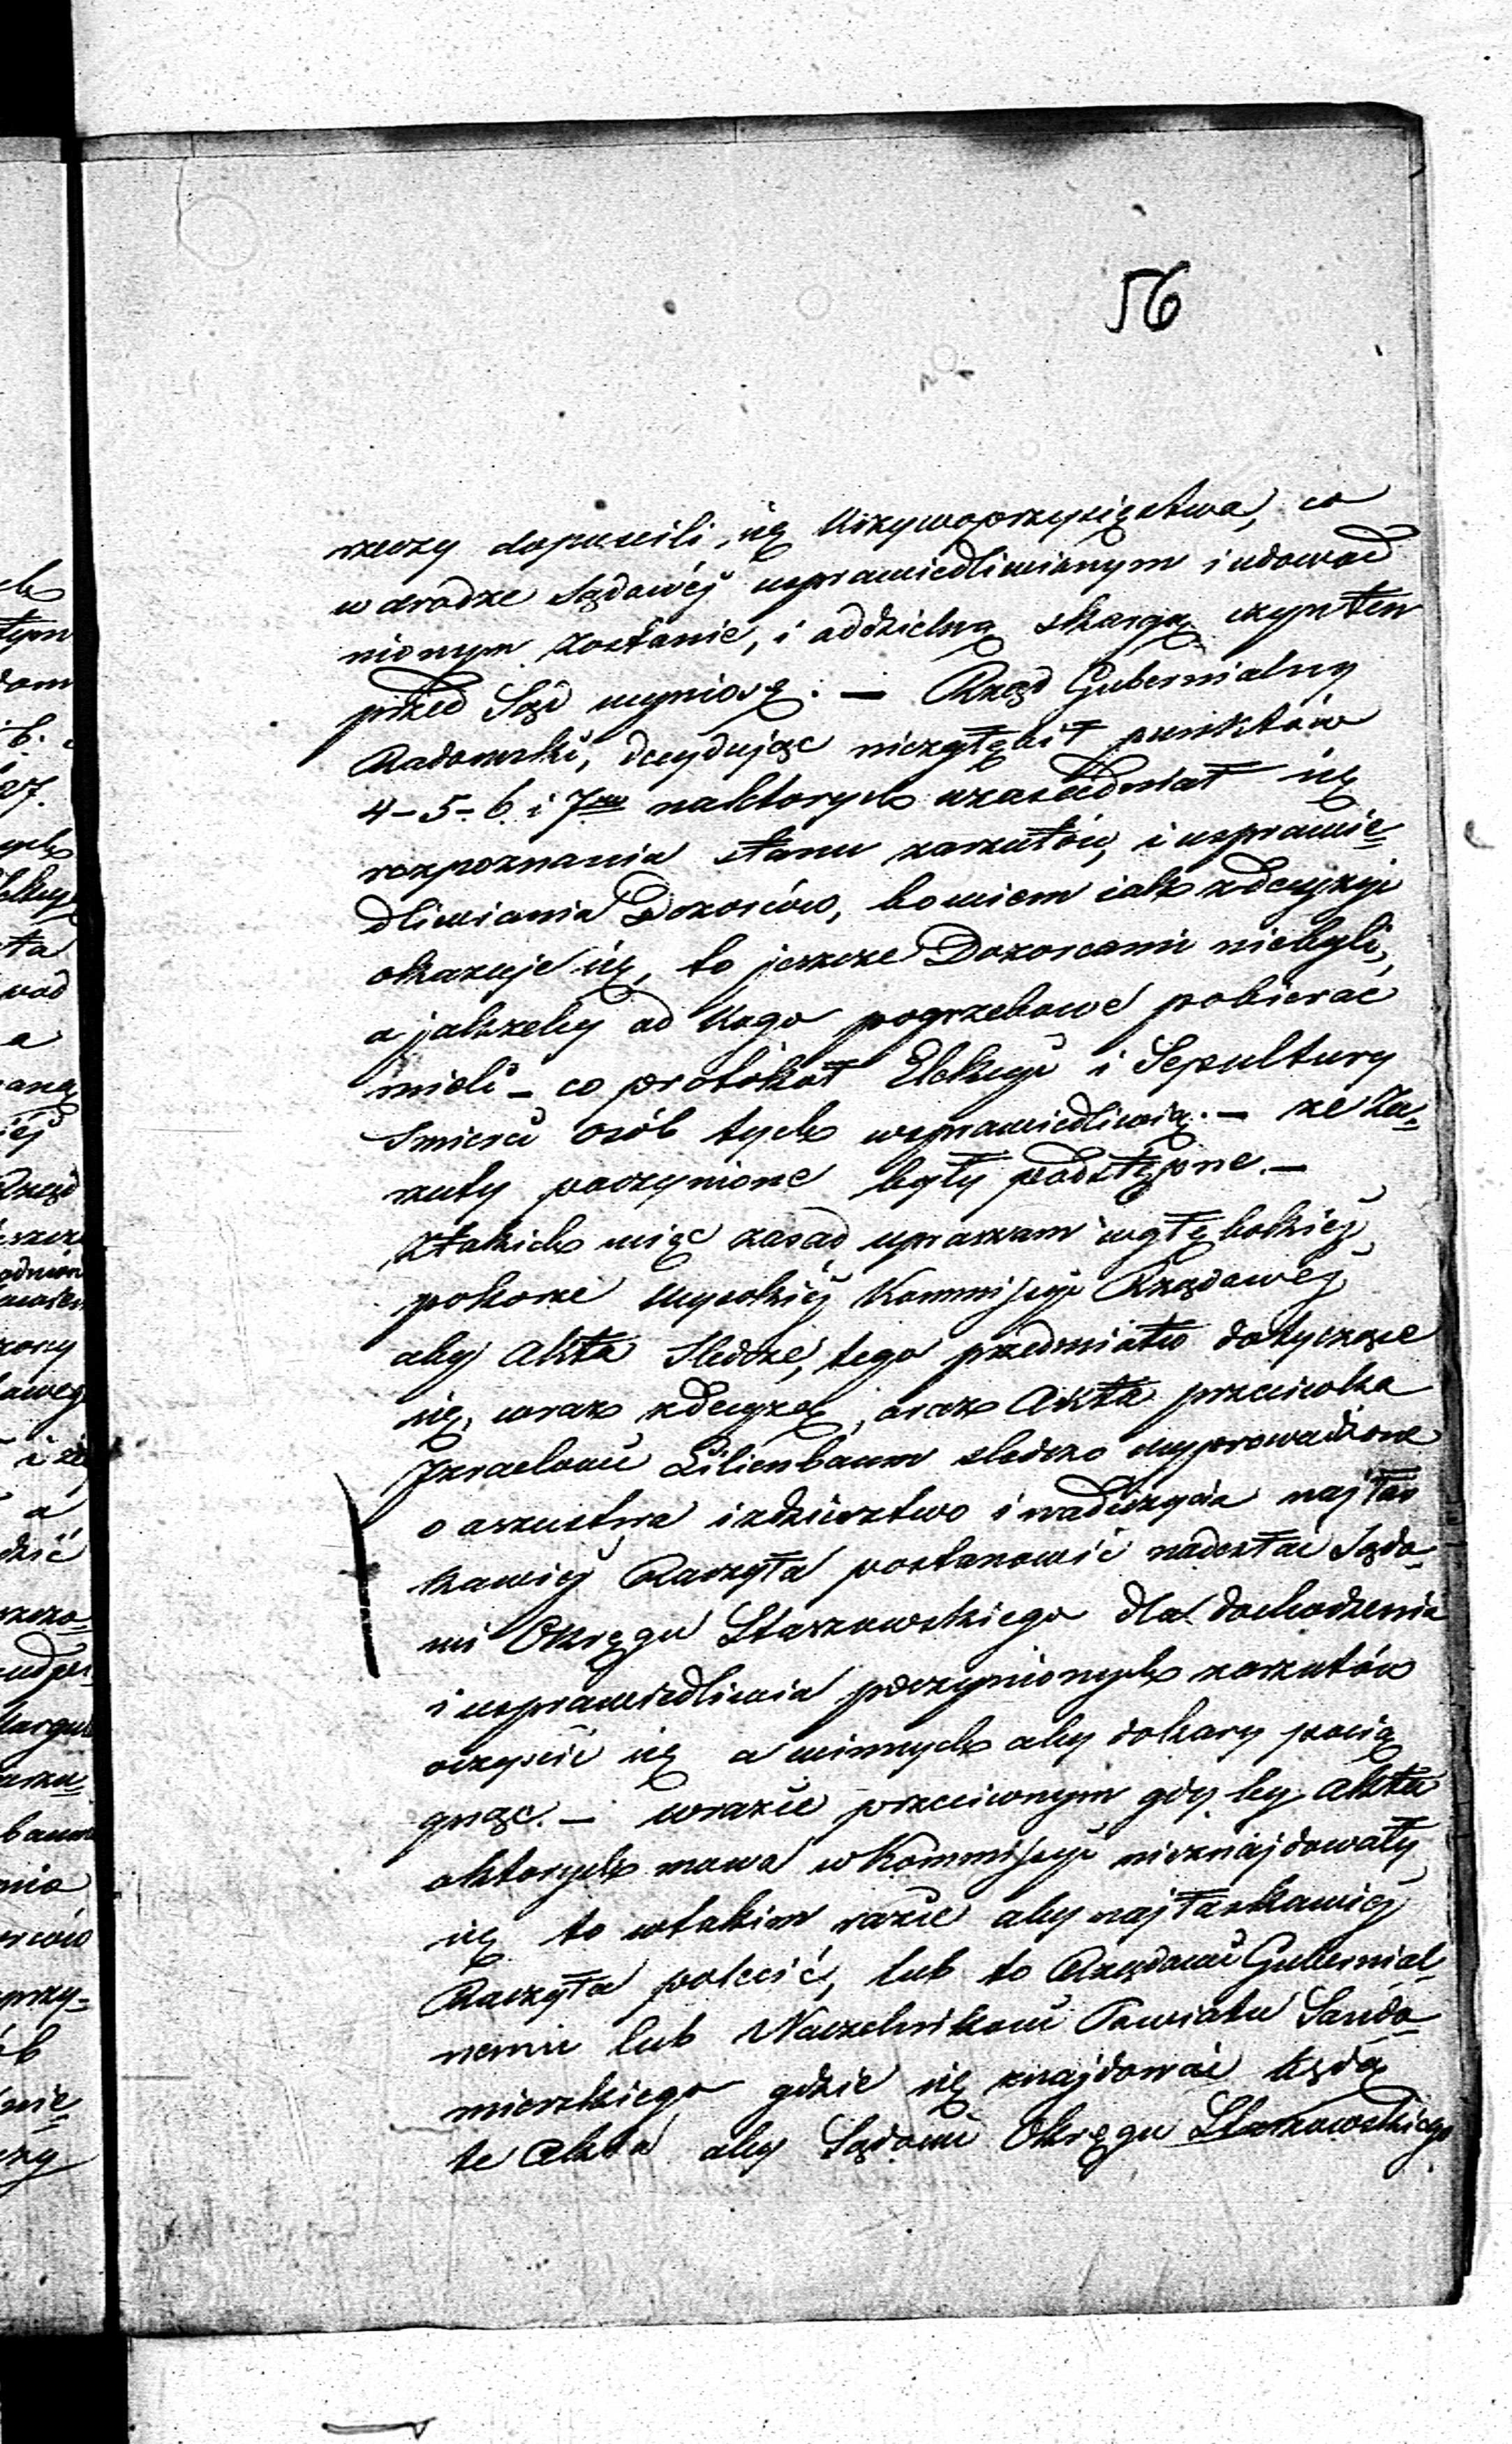 56
rzeczy dopuścili się Krzywoprzysięstwa, co
w drodze Sądowéj usprawiedliwionym i udowod
nionym zostanie, i oddzielną skargę czyn ten
przed Sąd wyniosę. — Rząd Gubernialny
Radomski, decydując niezgłębił punktów
4-5-6 i 7 na ktorych uzasadniał się
rozpoznania stanu zarzutów, i usprawie=
dliwiania Dozorców, bowiem iak z decyzyi
okazuje się, to jeszcze Dozorcami niebyli,
a jakżeby od Kogo pogrzebowe pobierac
mieli — co protokół Elekcyi i Sepultury
Smierci osób tych usprawiedliwią. — ze Za=
rzuty poczynione były podstępne. —
Ztakich więc zasad upraszam w głębokiéj
pokorze Wysokiéj Kommissyi Rządowéj
aby Akta Sledcze, tego przedmiotu dotyczące
się, wraz z decyzą, oraz Akta przeciwko
Izraelowi Lilienbaum sledczo wyprowadzone
o oszustwa i zdzierstwo i nadużycia najłas
kawiéj Raczyła postanowić nadesłać Sądo=
wi Okręgu Staszowskiego dla dochodzenia
i usprawiedliwia poczynionych zarzutów
oczyścić się a winnych aby do kary pocią
gnąc. — w razie przeciwnym gdy by Akta
o ktorych mowa w Kommissyi nieznajdowały
się to w takim razie aby najłaskawiéj
Raczyła polecić, lub to Rządowi Gubernial=
nemu lub Naczelnikowi Powiatu Sando=
mierskiego gdzie się znajdować będą
te Akta aby Sądowi Okręgu Staszowskiego